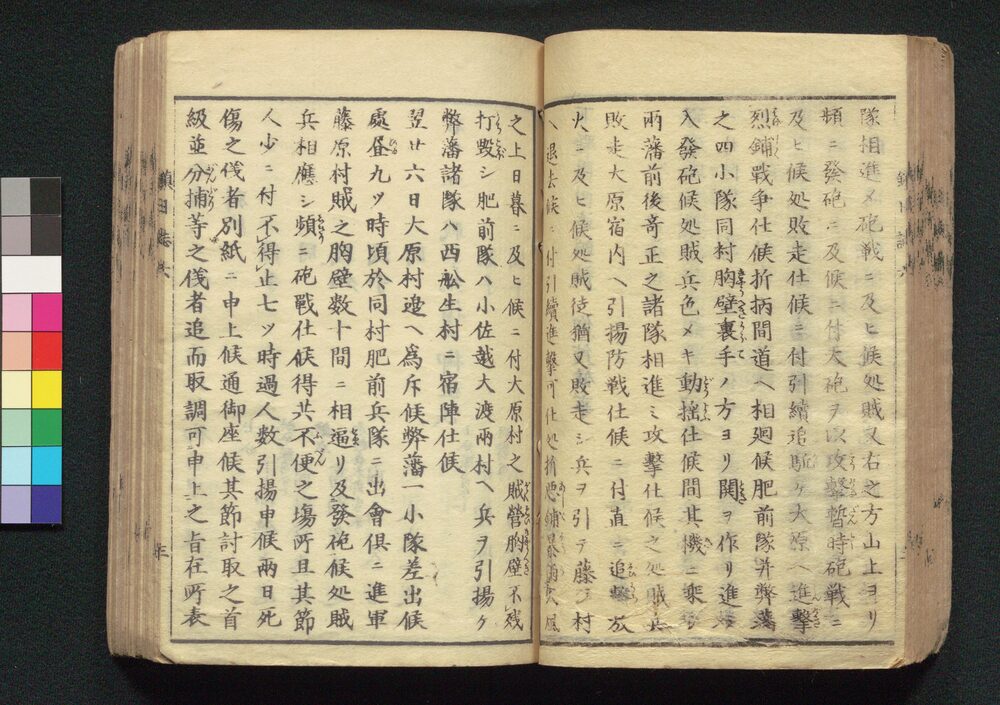 隊相進メ砲戦ニ及ヒ候処賊又右之方山上ヨリ
頻ニ發砲ニ及候ニ付大砲ヲ以攻撃暫時砲戦ニ
及ヒ候処敗走仕候ニ付引續追駈ケ大原ヘ進撃
烈鋪戦争仕候折柄間道ヘ相廻候肥前隊并弊藩
之四小隊同村胸壁裏手ノ方ヨリ鬨ヲ作リ進ミ
入發砲候処賊兵色メキ動揺仕候間其機ニ乗シ
兩藩前後竒正之諸隊相進ミ攻撃仕候之処賊兵
敗走大原宿内ヘ引揚防戦仕候ニ付直ニ追撃放
火ニ及ヒ候処賊徒猶又敗走シ兵ヲ引テ藤原村
ヘ退去候ニ付引續進撃可仕処折悪鋪暴雨大風
之上日暮ニ及ヒ候ニ付大原村之賊營胸壁不残
打毀シ肥前隊ハ小佐越大渡兩村ヘ兵ヲ引揚ケ
弊藩諸隊ハ西舩生村ニ宿陣仕候
翌廿六日大原村邉ヘ為斥候弊藩一小隊差出候
處昼九ツ時頃於同村肥前兵隊ニ出會倶ニ進軍
藤原村賊之胸壁数十間ニ相逼リ及發砲候処賊
兵相應シ頻ニ砲戰仕候得共不便之塲所且其節
人少ニ付不得止七ツ時過人数引揚申候兩日死
傷之儀者別紙ニ申上候通御座候其節討取之首
級並分捕等之儀者追而取調可申上之旨在所表